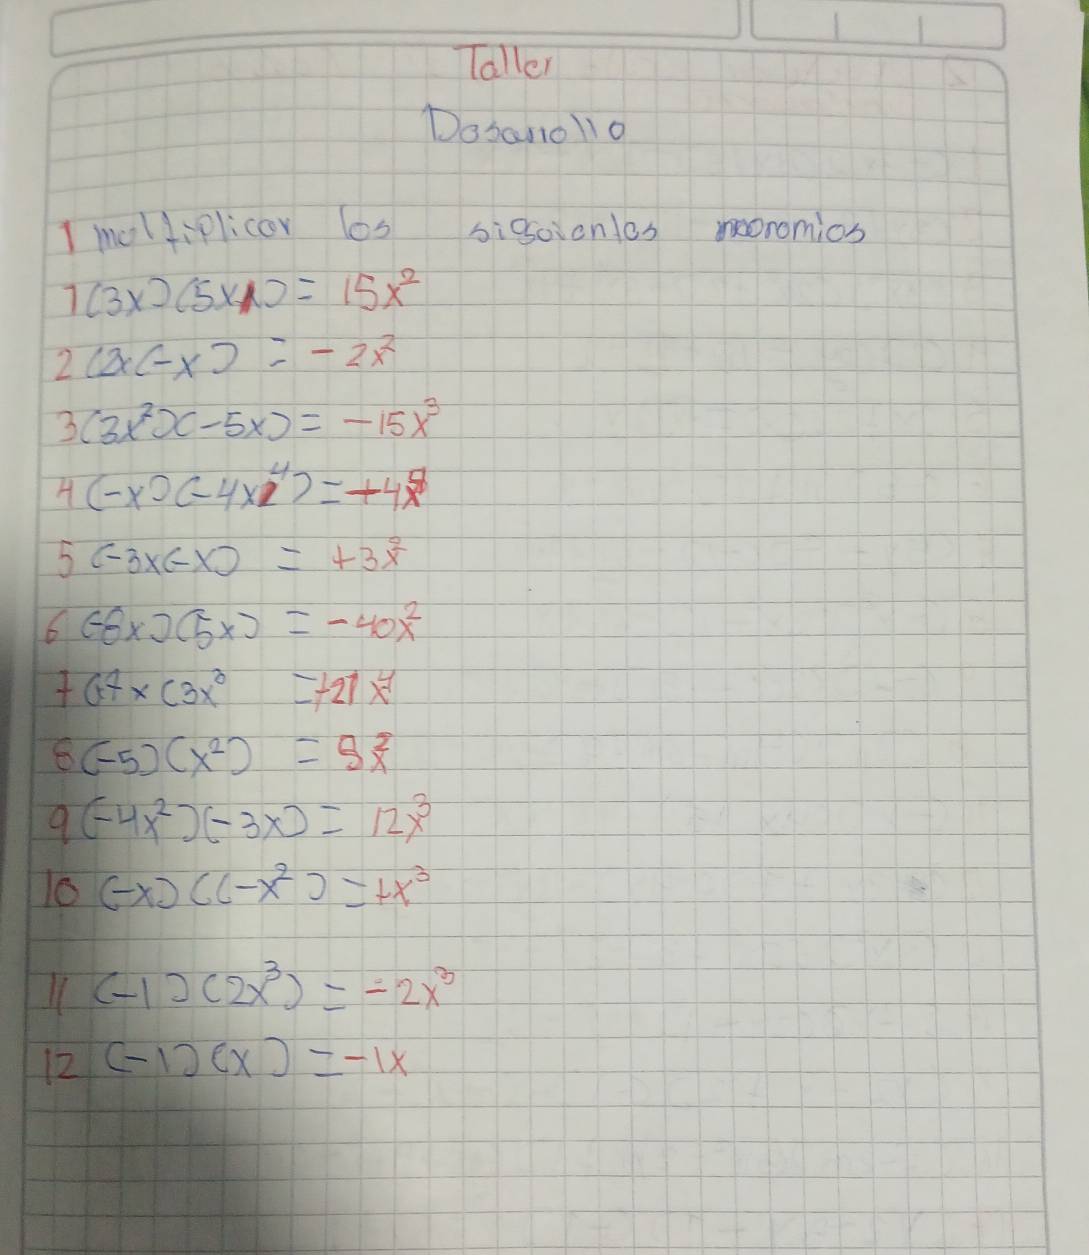 Taller
Desarrollo
1 multiplicar los siguientes monomios
1 (3x)(5x) = 15x²
2 (2x(-x) = -2x²
3 (3x²)(-5x) = -15x³
4 (-x)(-4x⁴) = +4x⁵
5 (-3x(-x) = +3x²
6 (-8x)(5x) = -40x²
7 (7x(3x³ = +21x⁴
8 (-5)(x²) = 5x²
9 (-4x²)(-3x) = 12x³
10 (-x)((-x²) = +x³
11 (-1)(2x³) = -2x³
12 (-1)(x) = -1x